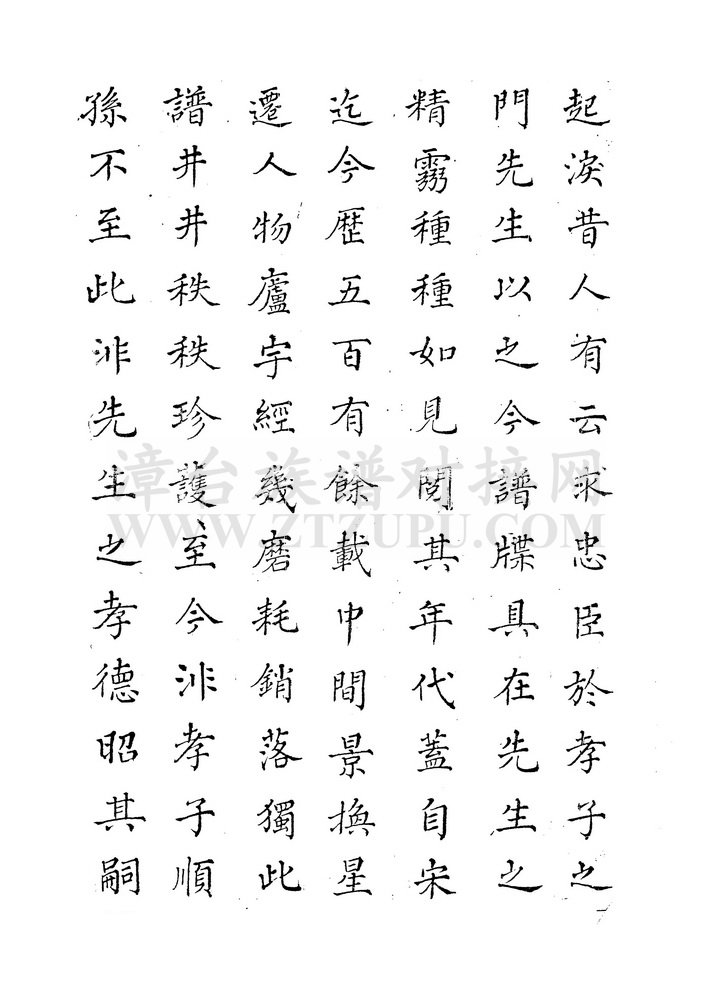 起淚昔人有云求忠臣於孝子之
門先生以之今譜牒具在先生之
精霧種種如見閱其年代蓋自宋
迄今歷五百有餘載中間景換星
遷人物廬宇經幾磨耗銷落獨此
譜井井秩秩珍護至今非孝子順
孫不至此非先生之孝德昭其嗣
漳台族谱对接网
WWW.ZTZUPU.COM